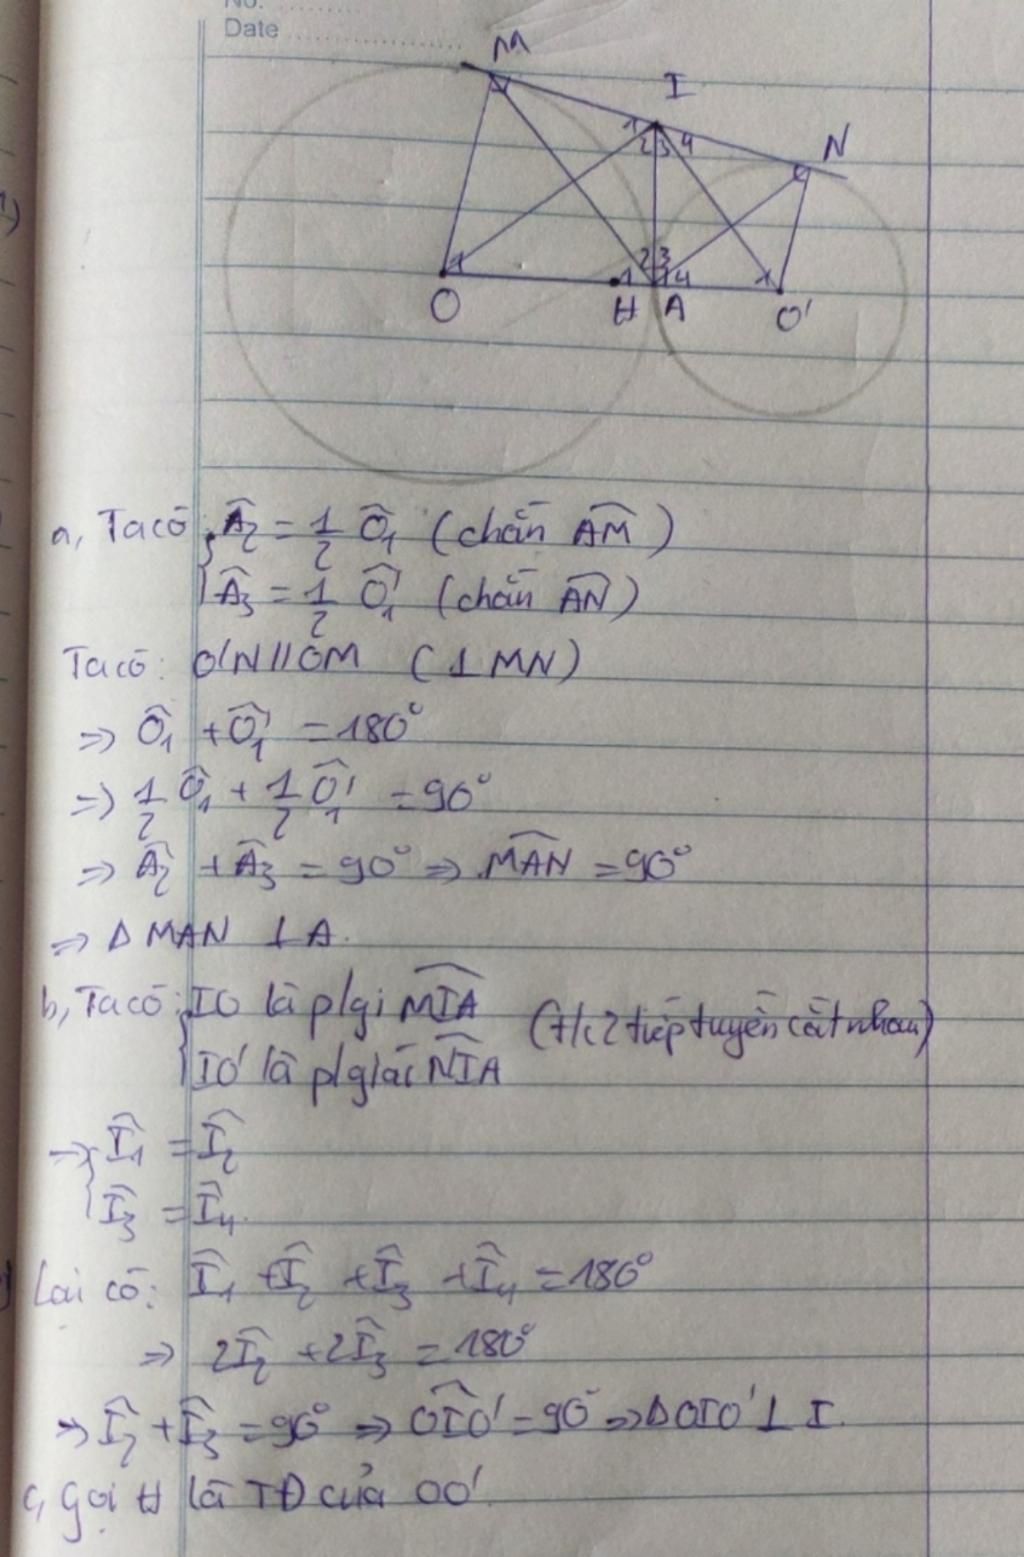 No.
Date
M
I
1 2 3 4
N
1
2 3
1 4
1
O
H
A
O'
a, Ta có: Â₂ = 1/2 Ô₁ (chắn AM)
Â₃ = 1/2 Ô'₁ (chắn AN)
Ta có: O'N // OM (⊥ MN)
=> Ô₁ + Ô'₁ = 180°
=> 1/2 Ô₁ + 1/2 Ô'₁ = 90°
=> Â₂ + Â₃ = 90° => MAN = 90°
=> Δ MAN ⊥ A.
b, Ta có: IO là p/gi MIA
IO' là p/giác NIA (t/c 2 tiếp tuyến cắt nhau)
=> Î₁ = Î₂
Î₃ = Î₄.
Lại có: Î₁ + Î₂ + Î₃ + Î₄ = 180°
=> 2Î₂ + 2Î₃ = 180°
=> Î₂ + Î₃ = 90° => OIO' = 90° => Δ OIO' ⊥ I.
c, Gọi H là TĐ của OO'.